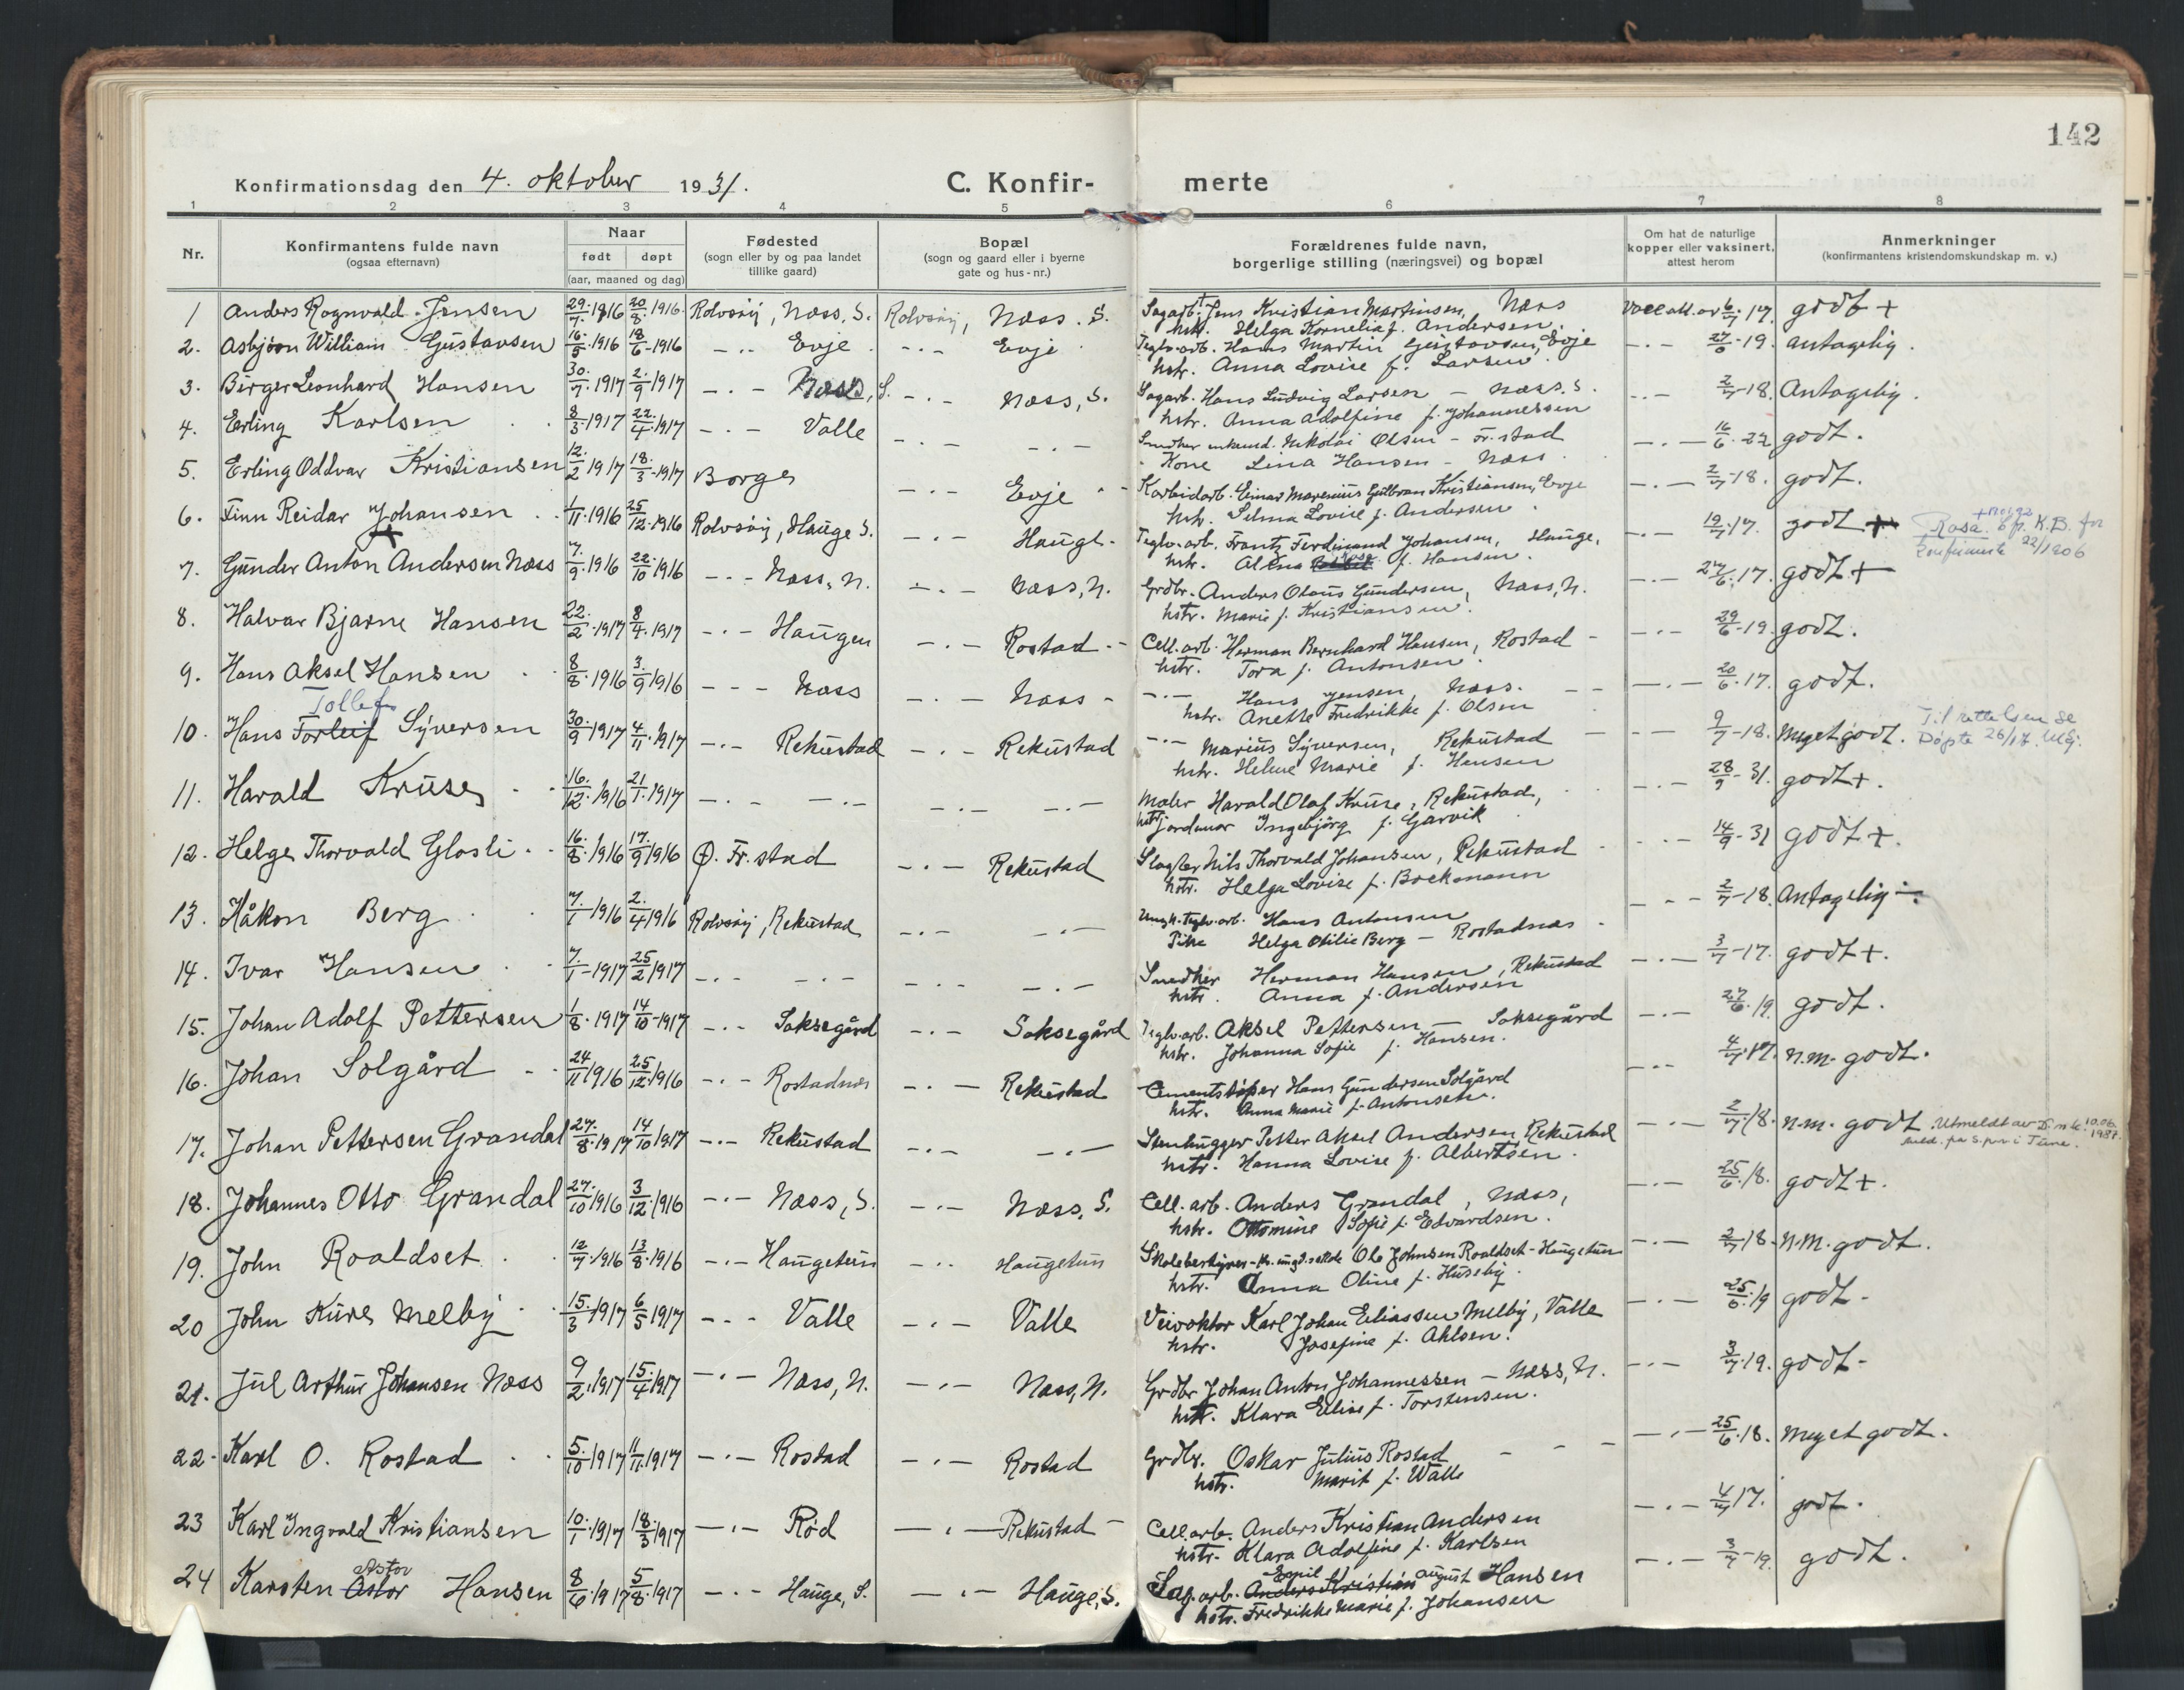 142
Konfirmationsdag den 4. oktober 1931.
C. Konfir- merte
1 2 3 4 5 6 7 8
Nr.
Konfirmantens fulde navn
(ogsaa efternavn)
Naar
født døpt
(aar, maaned og dag)
Fødested
(sogn eller by og paa landet
tillike gaard)
Bopæl
(sogn og gaard eller i byerne
gate og hus-nr.)
Forældrenes fulde navn,
borgerlige stilling (næringsvei) og bopæl
Om hat de naturlige
kopper eller vaksinert,
attest herom
Anmerkninger
(konfirmantens kristendomskundskap m. v.)
1 Anders Rognvald Jensen 29/7. 1916 20/8. 1916 Rolvsøy, Næss, S. Rolvsøy, Næss. S. Sagarb. Jens Kristian Martinsen, Næss 17. godt +
hstr. Helga Kornelia f. Andersen.
2. Asbjørn William Gustavsen 16/5 1916 18/6 1916 -.- Evje -.- Evje Teglv.arb. Hans Martin Gustavsen, Evje -.- 19. antagelig.
hstr. Anna Lovise f. Larsen
3. Birger Leonhard Hansen 30/7 1917 2/9 1917 -.- Næss, S. -.- Næss, S. Sagarb. Hans Ludvig Larsen - Næss. S. -.- 2/7-18. Antagelig.
hstr. Anna Adolfine f. Johannessen
4. Erling Karlsen 8/3 1917 22/4 1917 -.- Valle -.- -.- Snedker Nikolai Olsen - Fr.stad -.- 16/6. 22 godt.
Kone Lina Hansen - Næss
5. Erling Oddvar Kristiansen 12/2 1917 18/3 1917 Borge -.- Evje Karbidarb. Einar Marenius Gulbran Kristiansen, Evje -.- 2/7-18. godt.
hstr. Selma Lovise f. Andersen
6. Finn Reidar Johansen 1/11. 1916 25/12. 1916 Rolvsøy, Hauge S. -.- Hauge Teglv.arb. Frantz Ferdinand Johansen, Hauge, -.- 19/7. 17. godt + Rosa. K.B. for
konfirmerte 22/1906
hstr. Alma Rosa f. Hansen
7. Gunder Anton Andersen Næss 7/9 1916 22/10 1916 -.- Næss, N. -.- Næss, N. Grdbr. Anders Olaus Gundersen, Næss, N. -.- 27/6. 17. godt +
hstr. Marie f. Kristiansen
8. Halvar Bjarne Hansen 22/2 1917 8/4. 1917 -.- Haugen -.- Rostad Cell. arb. Herman Bernhard Hansen, Rostad -.- 29/6-19. godt.
hstr. Tora f. Antonsen
9. Hans Aksel Hansen 8/8 1916 3/9 1916 -.- Næss -.- Næss -.- Hans Jensen, Næss. -.- 20/6. 17. godt.
hstr. Anette Fredrikke f. Olsen
Tollef
10. Hans Torleif Syversen 30/9 1917 4/11 1917 -.- Rekustad -.- Rekustad -.- Marius Syversen, Rekustad -.- 9/7-18. Meget godt. Til rettelsen se
Døpte 26/17.
hstr. Helene Marie f. Hansen
11. Harald Kruse 16/12. 1916 21/1. 1917 -.- -.- -.- -.- Maler Harald Olaf Kruse, Rekustad, -.- 28/9-31. godt +.
hstr. jordmor Ingebjørg f. Garvik
12. Helge Thorvald Glosli 16/8. 1916 17/9 1916 Ø. Fr. stad -.- Rekustad Slagter Nils Thorvald Johansen, Rekustad -.- 14/9-31 godt +.
hstr. Helga Lovise f. Bockmann
13. Håkon Berg 7/1 1916 2/4 1916 Rolvsøy, Rekustad -.- -.- Ungk. teglv.arb. Hans Antonsen -.- 2/7-18. Antagelig
Pike Helga Otilie Berg - Rostadnæs
14. Ivar Hansen 7/1-1917 25/2 1917 -.- -.- -.- -.- Snedker Herman Hansen, Rekustad -.- 3/7-17. godt +.
hstr. Anna f. Andersen
15. Johan Adolf Pettersen 1/8. 1917 14/10-1917 -.- Saksegård -.- Saksegård Teglv.arb. Aksel Pettersen - Saksegård -.- 27/6. 19. godt.
hstr. Johanna Sofie f. Hansen.
16. Johan Solgård 24/11 1916 25/12 1916 -.- Rostadnæs -.- Rekustad Cementstøper Hans Gundersen Solgård -.- 4/7. 17. n.m. godt.
hstr. Anna Marie f. Antonsen.
17. Johan Pettersen Grandal 27/8. 1917 14/10 1917 -.- Rekustad -.- -.- Stenhugger Petter Aksel Andersen, Rekustad -.- 2/7/18. n.m. godt Utmeldt av D.n.k. 10.06.
1987.
hstr. Hanna Lovise f. Albertsen
18. Johannes Otto Grandal 27/10 1916 3/12 1916 -.- Næss, S. -.- Næss, S. Cell. arb. Anders Grandal, Næss, -.- 25/6. 18. godt +.
hstr. Ottomine Sofie f. Edvardsen.
19. John Roaldset 12/7. 1916 13/8. 1916 -.- Haugetun -.- Haugetun Skolebestyrer Ole Johnsen Roaldset - Haugetun -.- 2/7 18. N.M. godt.
hstr. Anna Oline f. Huseby
20 John Kure Melby 15/3 1917 6/5 1917 -.- Valle -.- Valle Veivokter Karl Johan Eliassen Melby, Valle -.- 25/6. 19 godt -
hstr. Josefine f. Ahlsen.
21. Jul Arthur Johansen Næss 9/2. 1917 15/4 1917 -.- Næss, N. -.- Næss, N. Grdbr Johan Anton Johannessen - Næss, N. -.- 3/7. 19. godt -
hstr. Klara Elise f. Torstensen.
22. Karl O. Rostad 5/10 1917 11/11. 1917 -.- Rostad -.- Rostad Grdbr. Oskar Julius Rostad -.- 25/6. 18. Meget godt.
hstr. Marit f. Walle
23 Karl Ingvald Kristiansen 10/1. 1917 18/3 1917 -.- Rød -.- Rekustad Cell. arb. Anders Kristian Andersen -.- 4/7 17. godt.
hstr. Klara Adolfine f. Karlsen
Astor
24 Karsten Astor Hansen 8/6 1917 5/8. 1917 -.- Hauge, S. -.- Hauge, S. Sag. arb. Anders Kristian Emil August Hansen -.- 3/7-19. godt.
hstr. Fredrikke Marie f. Johansen